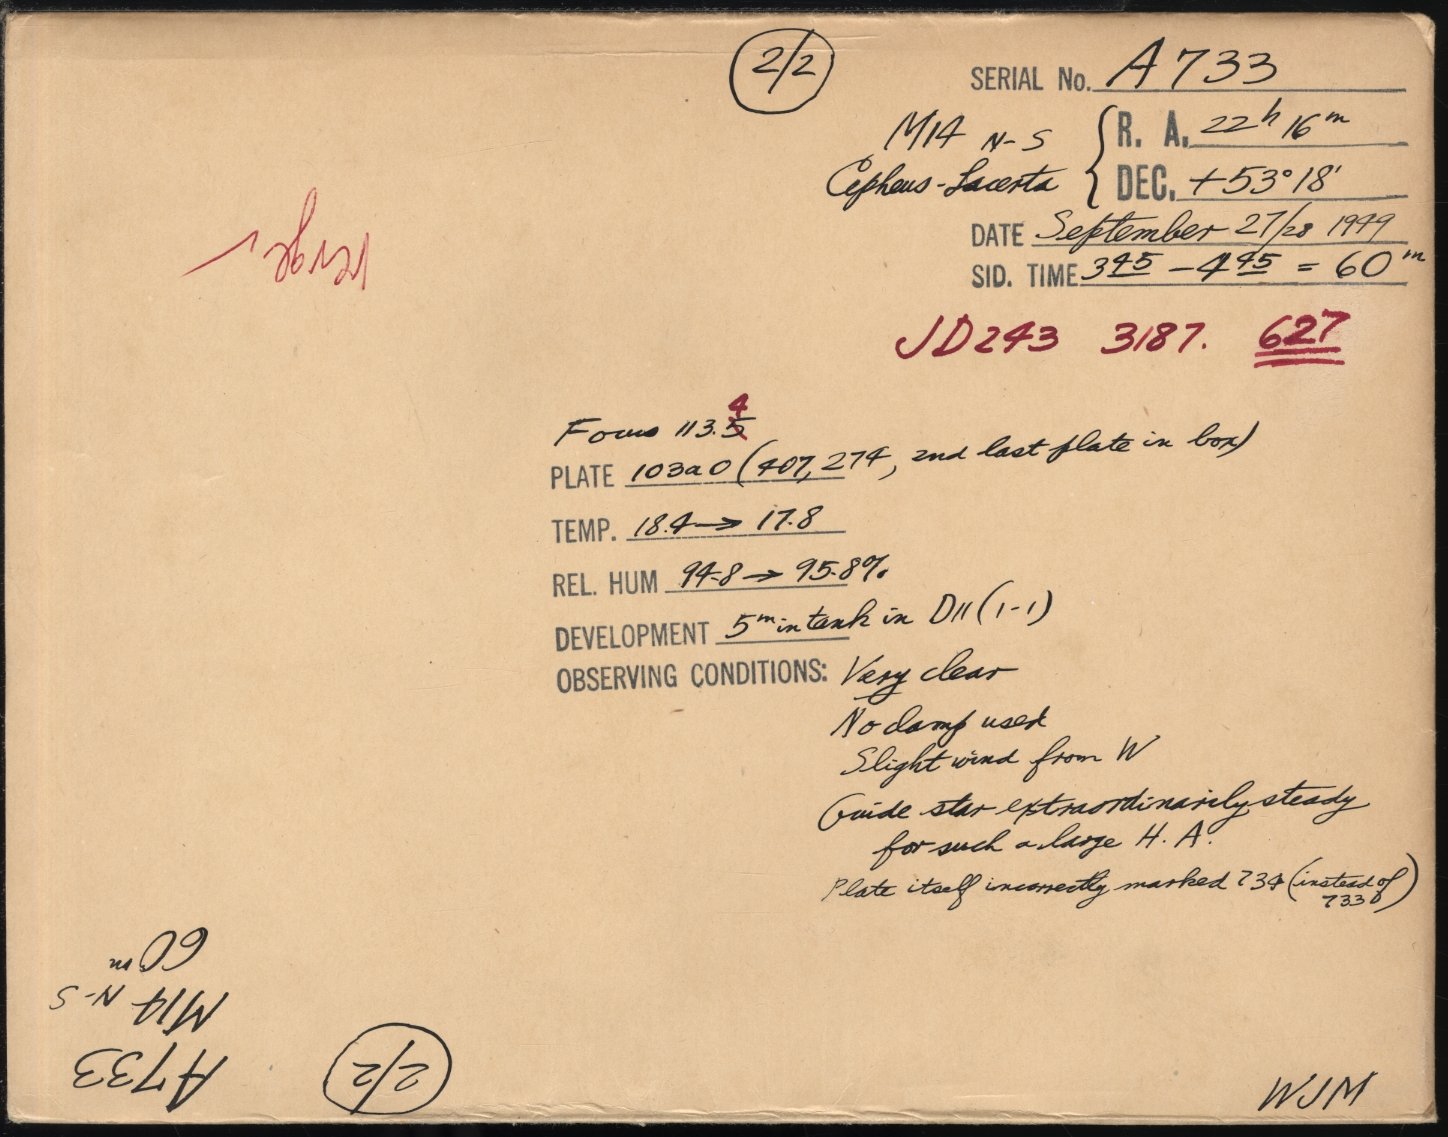 2/2
SERIAL No. A733
M14 N-S
R. A. 22h 16m
Cepheus-Lacerta
DEC. +53° 18'
DATE September 27/28 1949
SID. TIME 3 45 - 4 45 = 60m
JD 243 3187. 627
4
Focus 113.5
PLATE 103aO (407,274, 2nd last plate in box)
TEMP. 18.4 → 17.8
REL. HUM 94.8 → 95.8%
DEVELOPMENT 5m in tank in D11 (1-1)
OBSERVING CONDITIONS: Very clear
No damp used
Slight wind from W
Guide star extraordinarily steady
for such a large H. A.
Plate itself incorrectly marked 734 (instead of
733)
60m
M14 N-S
A733
2/2
WJM